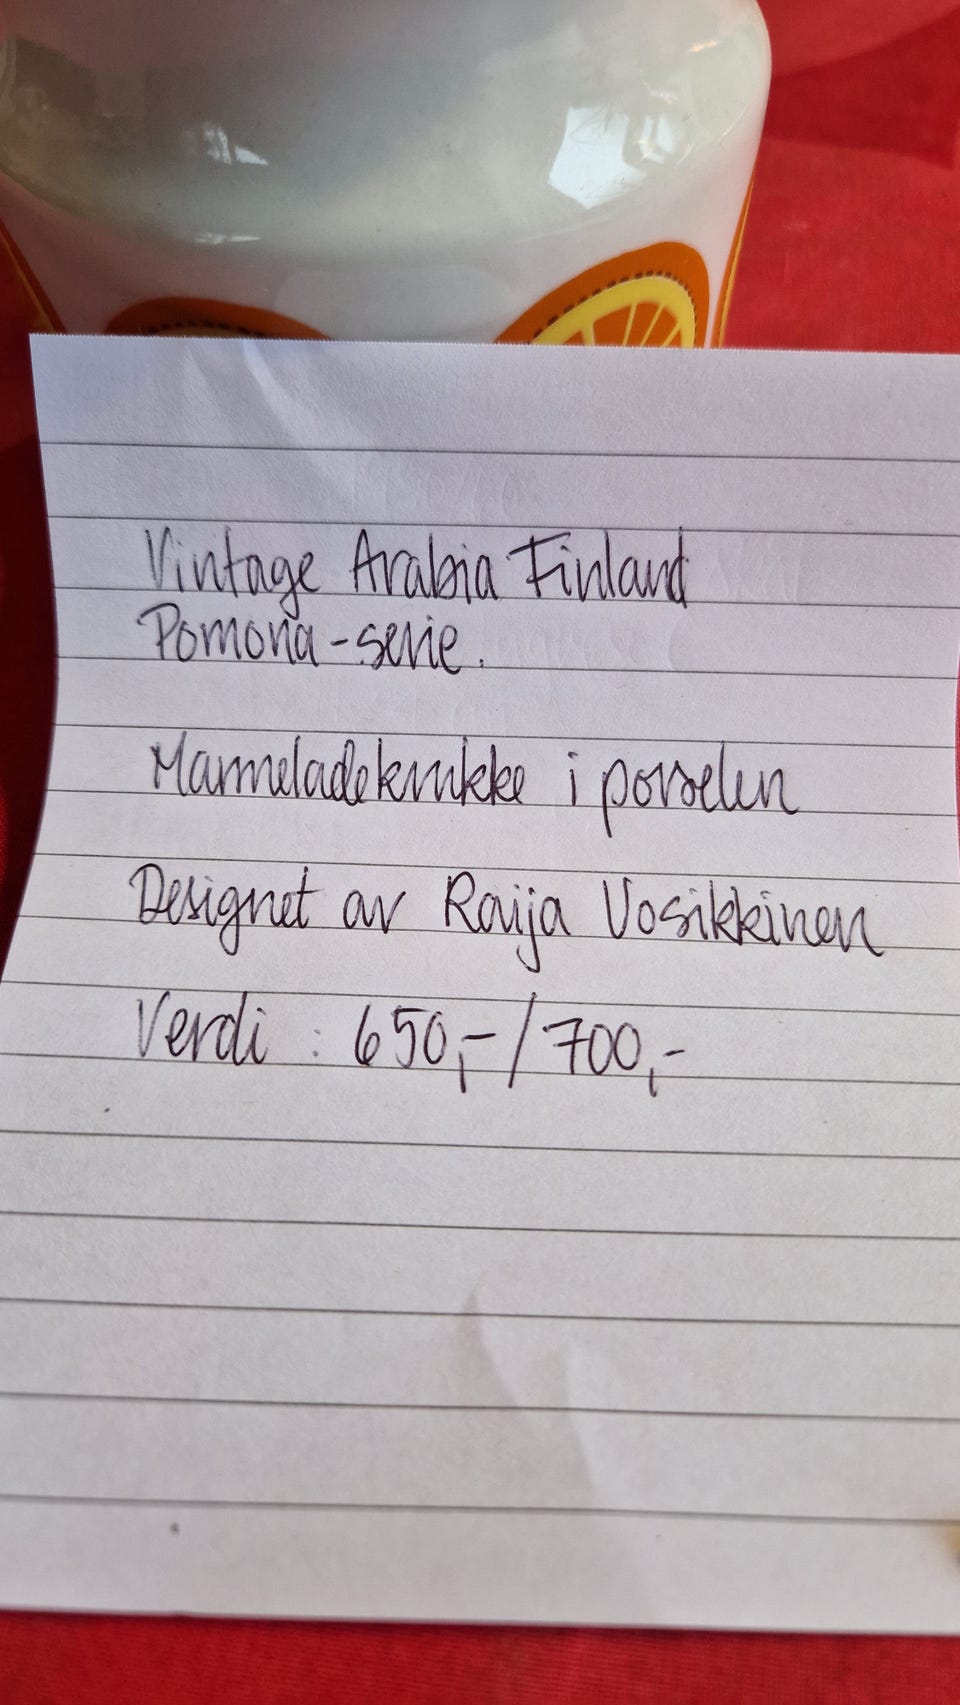 Vintage Arabia Finland
Pomona-serie.
Marmeladekrukke i porselen
Designet av Raija Vosikkinen
Verdi: 650,-/700,-